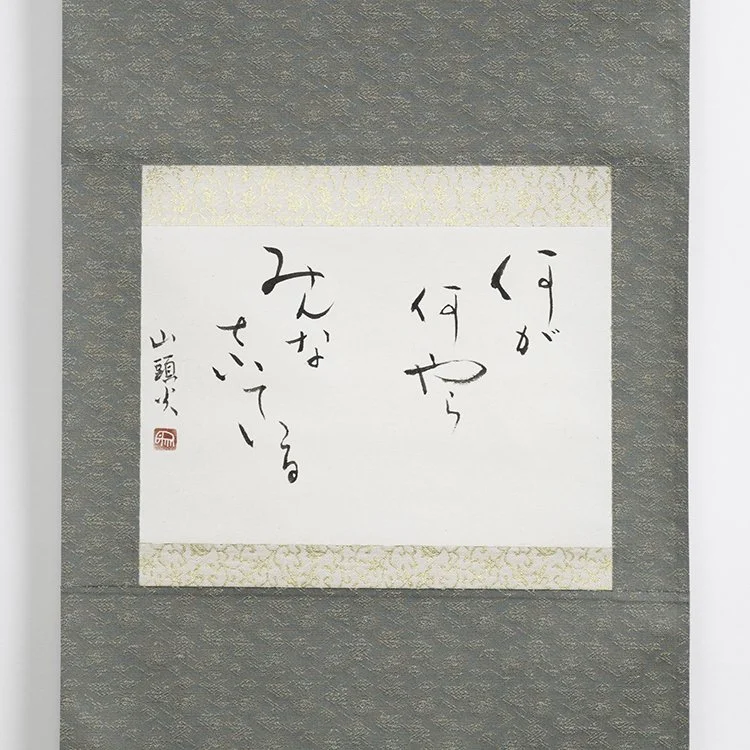 何が
何やら
みんな
さいている
山頭火